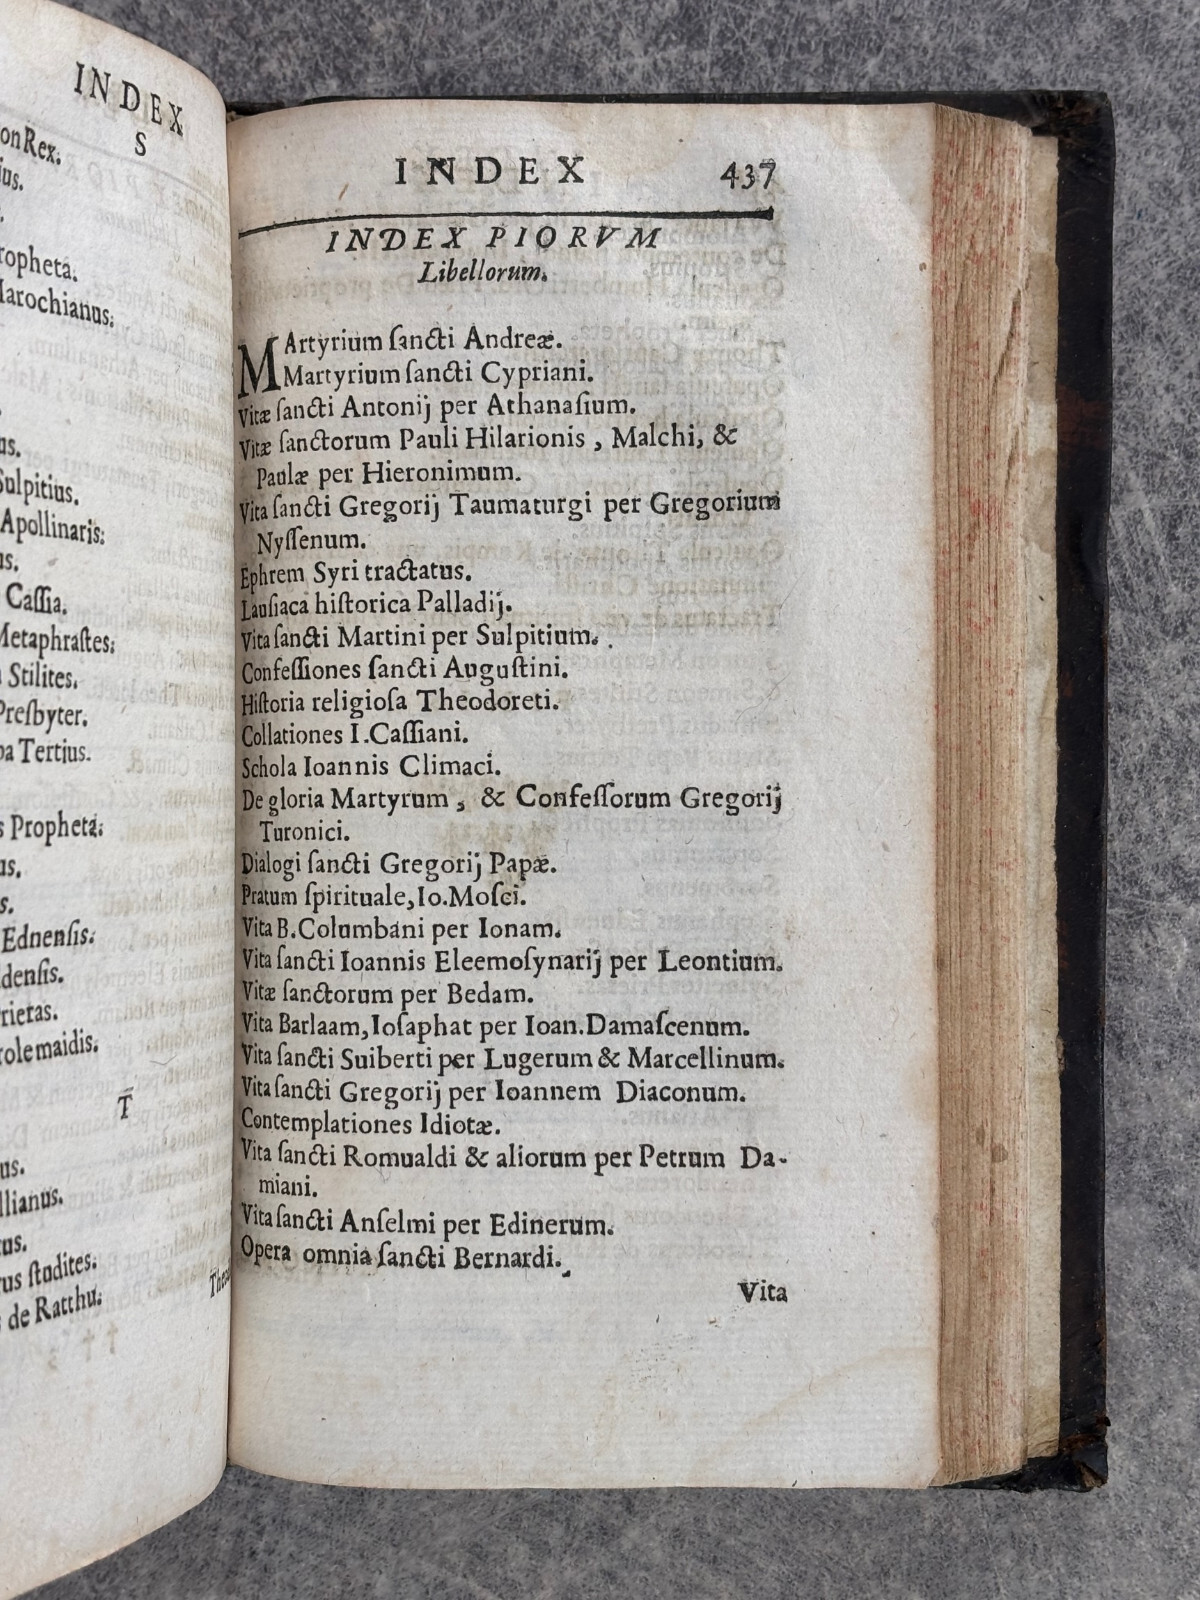 INDEX
S
on Rex.
ius.
ropheta.
Marochianus.
us.
Sulpitius.
Apollinaris:
us.
Caſſia.
Metaphraſtes;
Stilites.
Preſbyter.
pa Tertius.
s Propheta:
us.
s.
Ednenſis:
denſis.
rieras.
rolemaidis.
T
us.
llianus.
tus.
rus ſtudites:
de Ratthu.
INDEX 437
INDEX PIORVM
Libellorum.
MArtyrium ſancti Andreæ.
Martyrium ſancti Cypriani.
Vitæ ſancti Antonij per Athanaſium.
Vitæ ſanctorum Pauli Hilarionis, Malchi, &
Paulæ per Hieronimum.
Vita ſancti Gregorij Taumaturgi per Gregorium
Nyſſenum.
Ephrem Syri tractatus.
Lauſiaca hiſtorica Palladij.
Vita ſancti Martini per Sulpitium.
Confeſſiones ſancti Auguſtini.
Hiſtoria religioſa Theodoreti.
Collationes I. Caſſiani.
Schola Ioannis Climaci.
De gloria Martyrum, & Confeſſorum Gregorij
Turonici.
Dialogi ſancti Gregorij Papæ.
Pratum ſpirituale, Io. Moſci.
Vita B. Columbani per Ionam.
Vita ſancti Ioannis Eleemoſynarij per Leontium.
Vitæ ſanctorum per Bedam.
Vita Barlaam, Ioſaphat per Ioan. Damaſcenum.
Vita ſancti Suiberti per Lugerum & Marcellinum.
Vita ſancti Gregorij per Ioannem Diaconum.
Contemplationes Idiotæ.
Vita ſancti Romualdi & aliorum per Petrum Da-
miani.
Vita ſancti Anſelmi per Edinerum.
Opera omnia ſancti Bernardi.
Vita